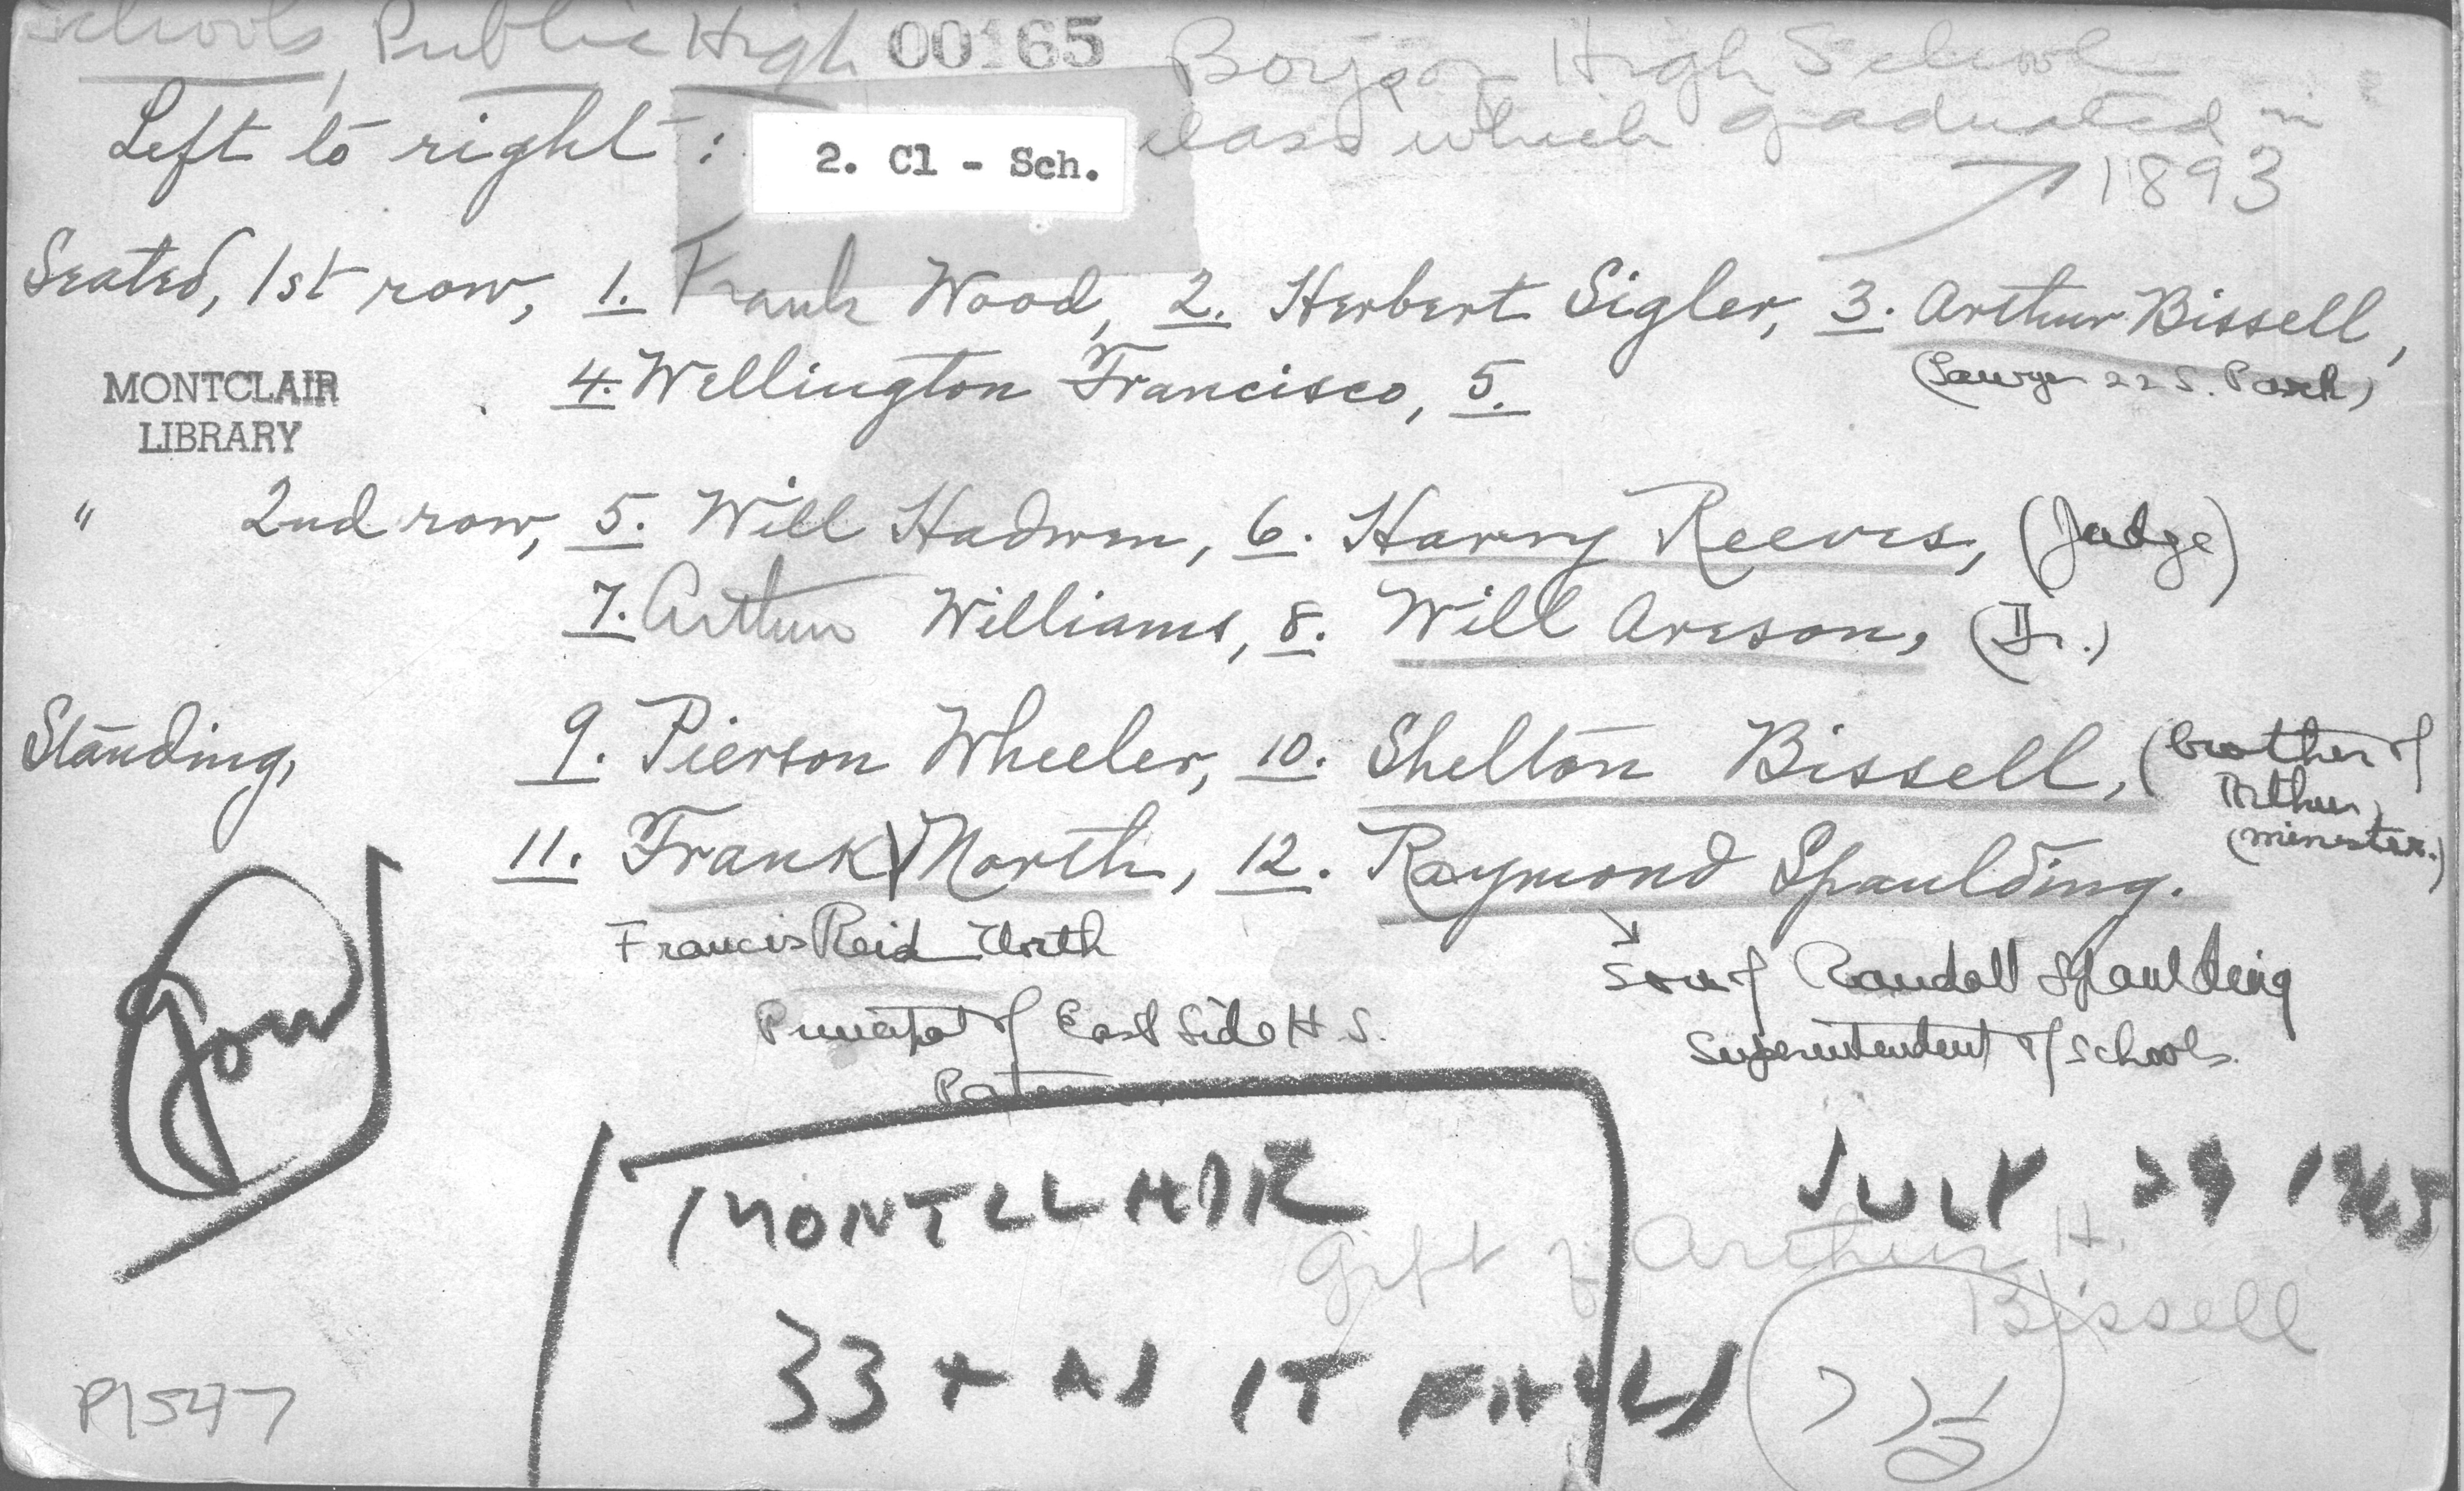 Schools, Public High 00165 Boys of High School
class which graduated in
1893
Left to right:
2. Cl - Sch.
Seated, 1st row, 1. Frank Wood, 2. Herbert Sigler, 3. Arthur Bissell,
(Lawyer 22 S. Park)
4. Wellington Francisco, 5.
MONTCLAIR
LIBRARY
" 2nd row, 5. Will Hadwen, 6. Harry Reeves, (Judge)
7. Arthur Williams, 8. Will Areson, (Dr.)
Standing, 9. Pierson Wheeler, 10. Shelton Bissell, (brother of
Arthur)
(minester.)
11. Frank North, 12. Raymond Spaulding.
Francis Reid North
Son of Randall Spaulding
Principal of East Side H. S.
Superintendent of Schools.
JULY 29 1965
MONTCLAIR
Gift of Arthur H.
Bissell
33 + AS IT
P1547